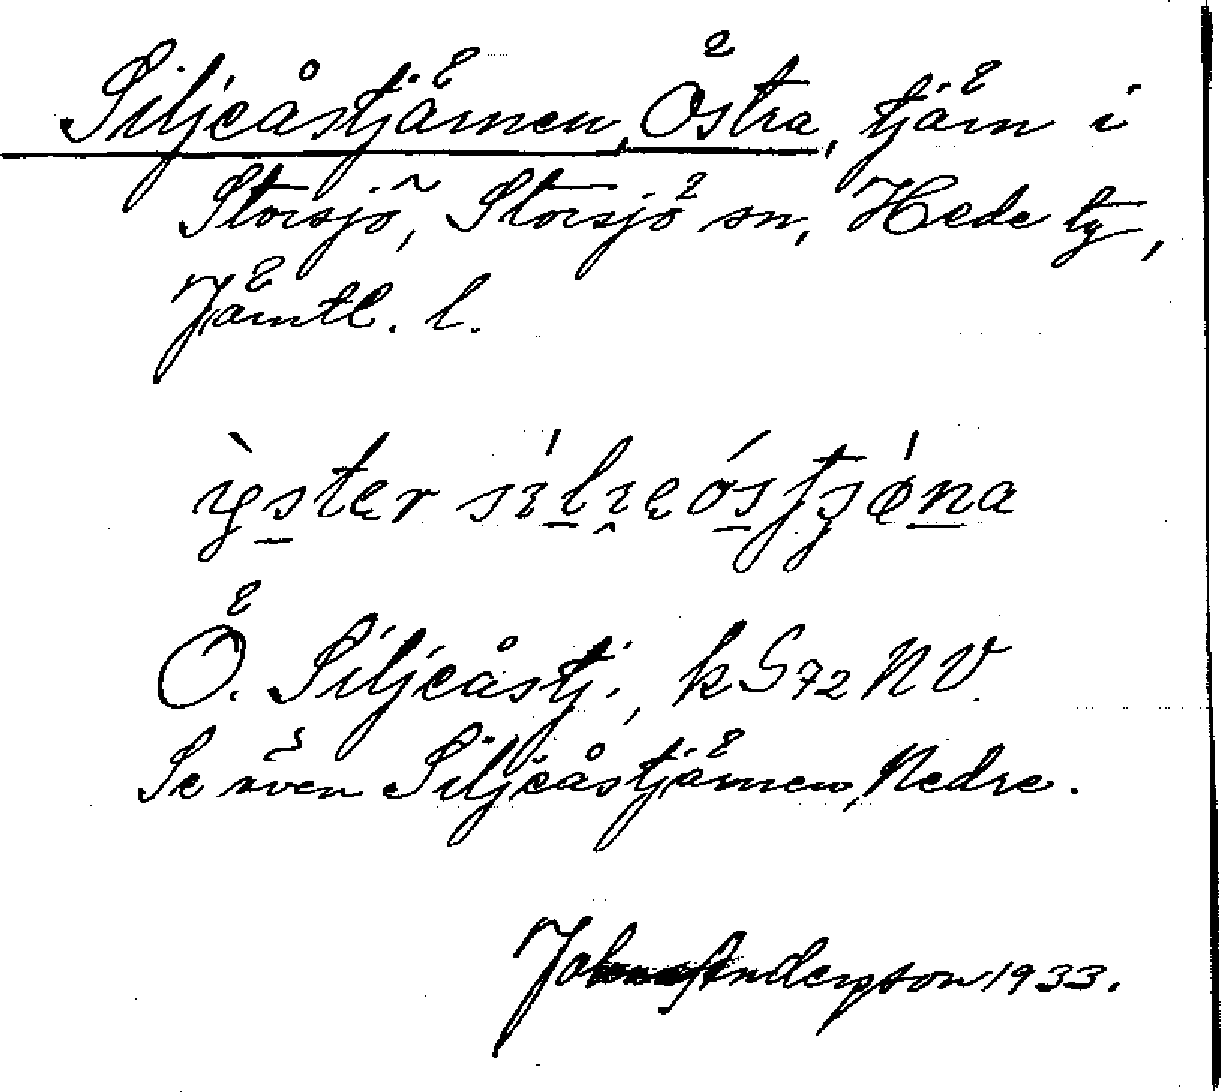 Siljeåstjärnen, Östra, tjärn i
Storsjö, Storsjö sn, Hede tg,
Jämtl. l.
Ö. Siljeåstj., k G 72 NV.
Se även Siljeåstjärnen, Nedre.
Anderson 1933.